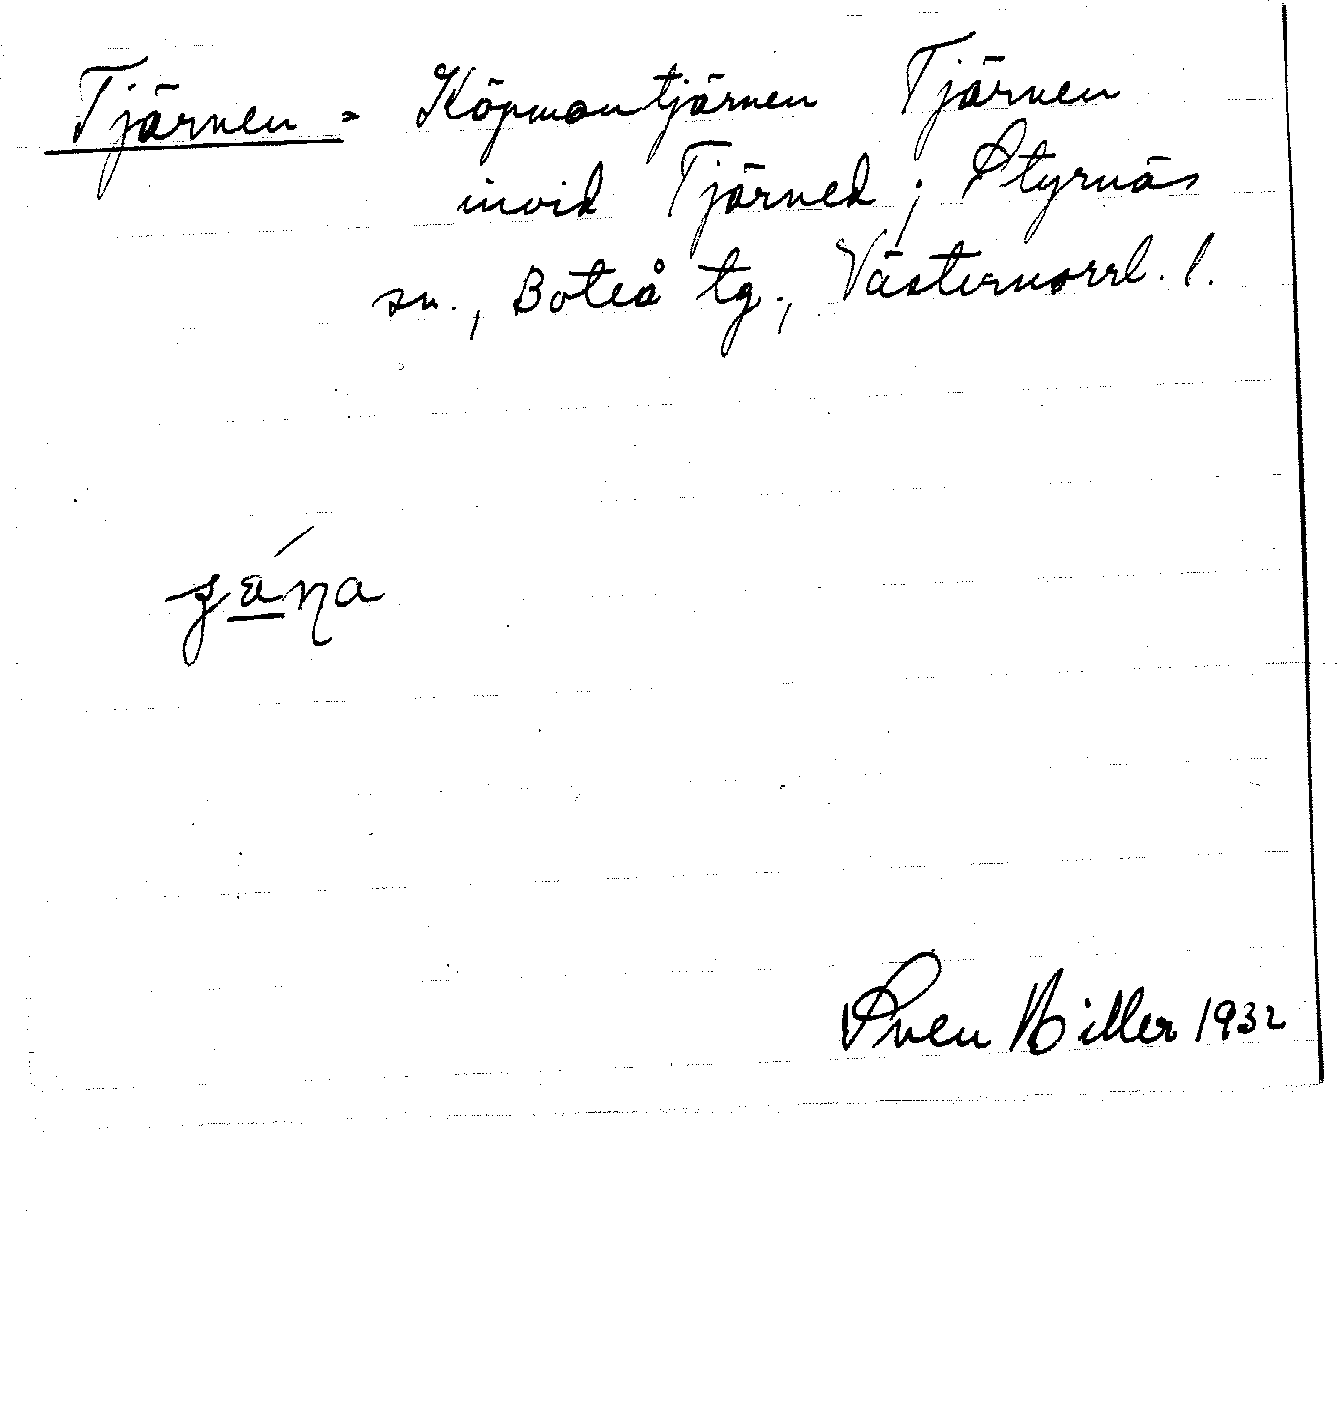 Tjärnen = Köpmantjärnen Tjärnen
invid Tjärned; Styrnäs
sn., Boteå tg., Västernorrl. l.
Sven Hiller 1932